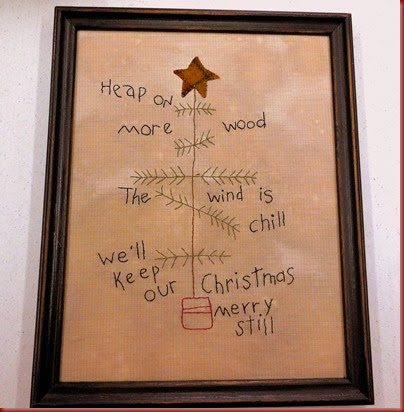 Heap on
more wood
The wind is
chill
we'll
Keep
our Christmas
merry
still